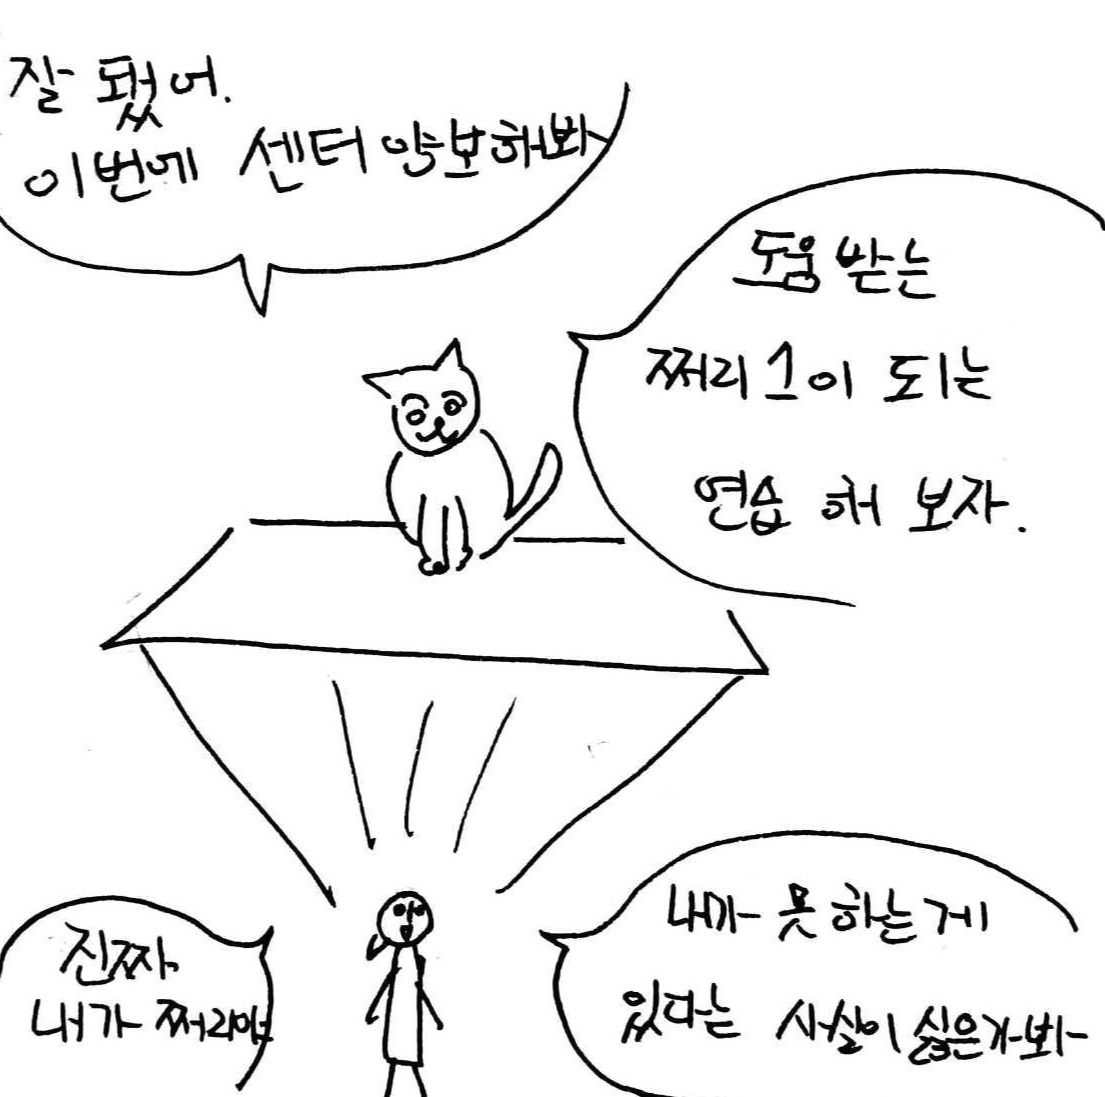 잘 됐어.
이번에 센터 양보해봐
도움 받는
쩌리 1이 되는
연습 해 보자.
진짜
내가 쩌리야
내가 못 하는게
있다는 사실이 싫은가봐